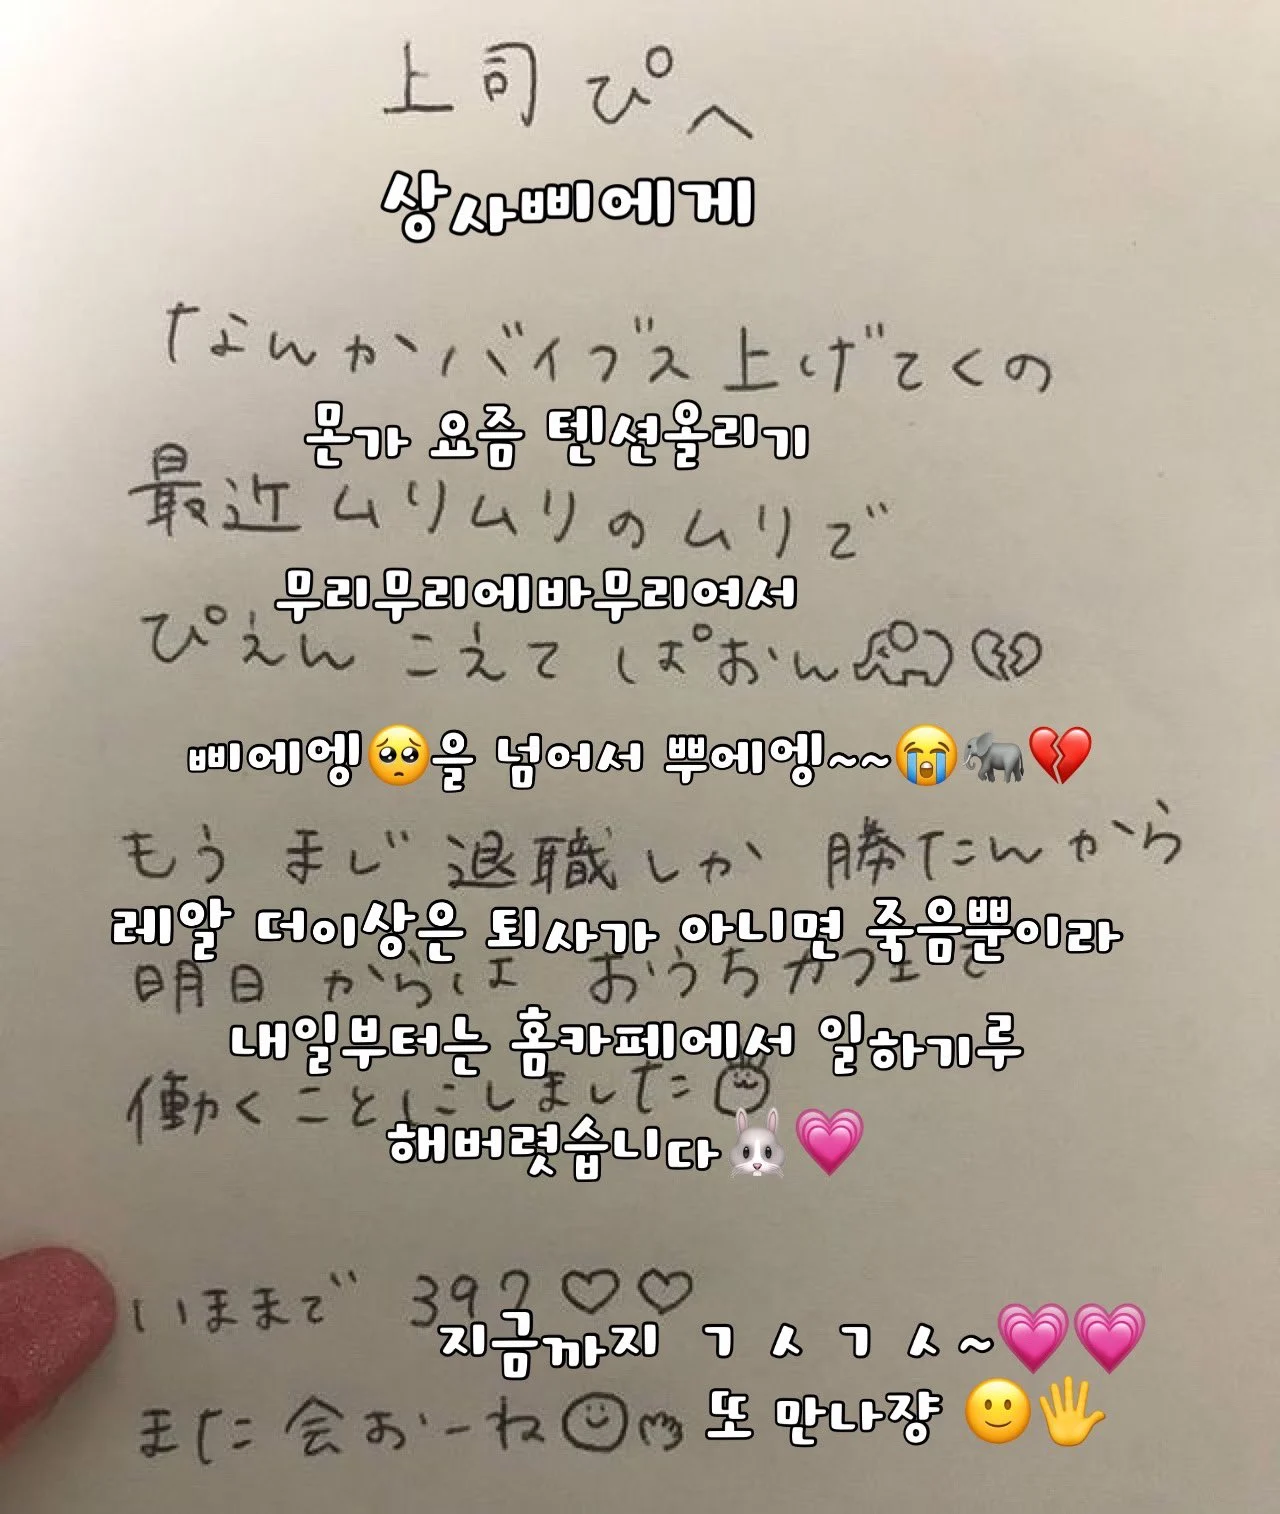 上司ぴへ
상사삐에게
なんかバイブス上げてくの
몬가 요즘 텐션올리기
最近ムリムリのムリで
무리무리에바무리여서
ぴえんこえてぱおん
삐에엥🥺을 넘어서 뿌에엥~~😭🐘💔
もうまじ退職しか勝たんから
레알 더이상은 퇴사가 아니면 죽음뿐이라
明日からは おうちカフェで
내일부터는 홈카페에서 일하기루
働くことにしました
해버렷습니다🐰💗
いままで 392♡♡
지금까지 ㄱ ㅅ ㄱ ㅅ~💗💗
また会おーね
또 만나쟝 🙂🖐